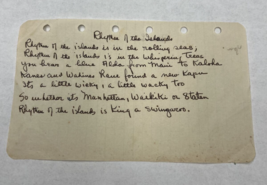 Rhythm of the Islands
Rhythm of the islands is in the rolling seas,
Rhythm of the islands is in the whispering trees
You hear a blue Aloha from Maui to Kaloha
Kanes and Wahines have found a new Kapu
Its a little wicky is a little wacky too
So whether its Manhattan, Waikiki or Staten
Rhythm of the islands is King a swingeroo.